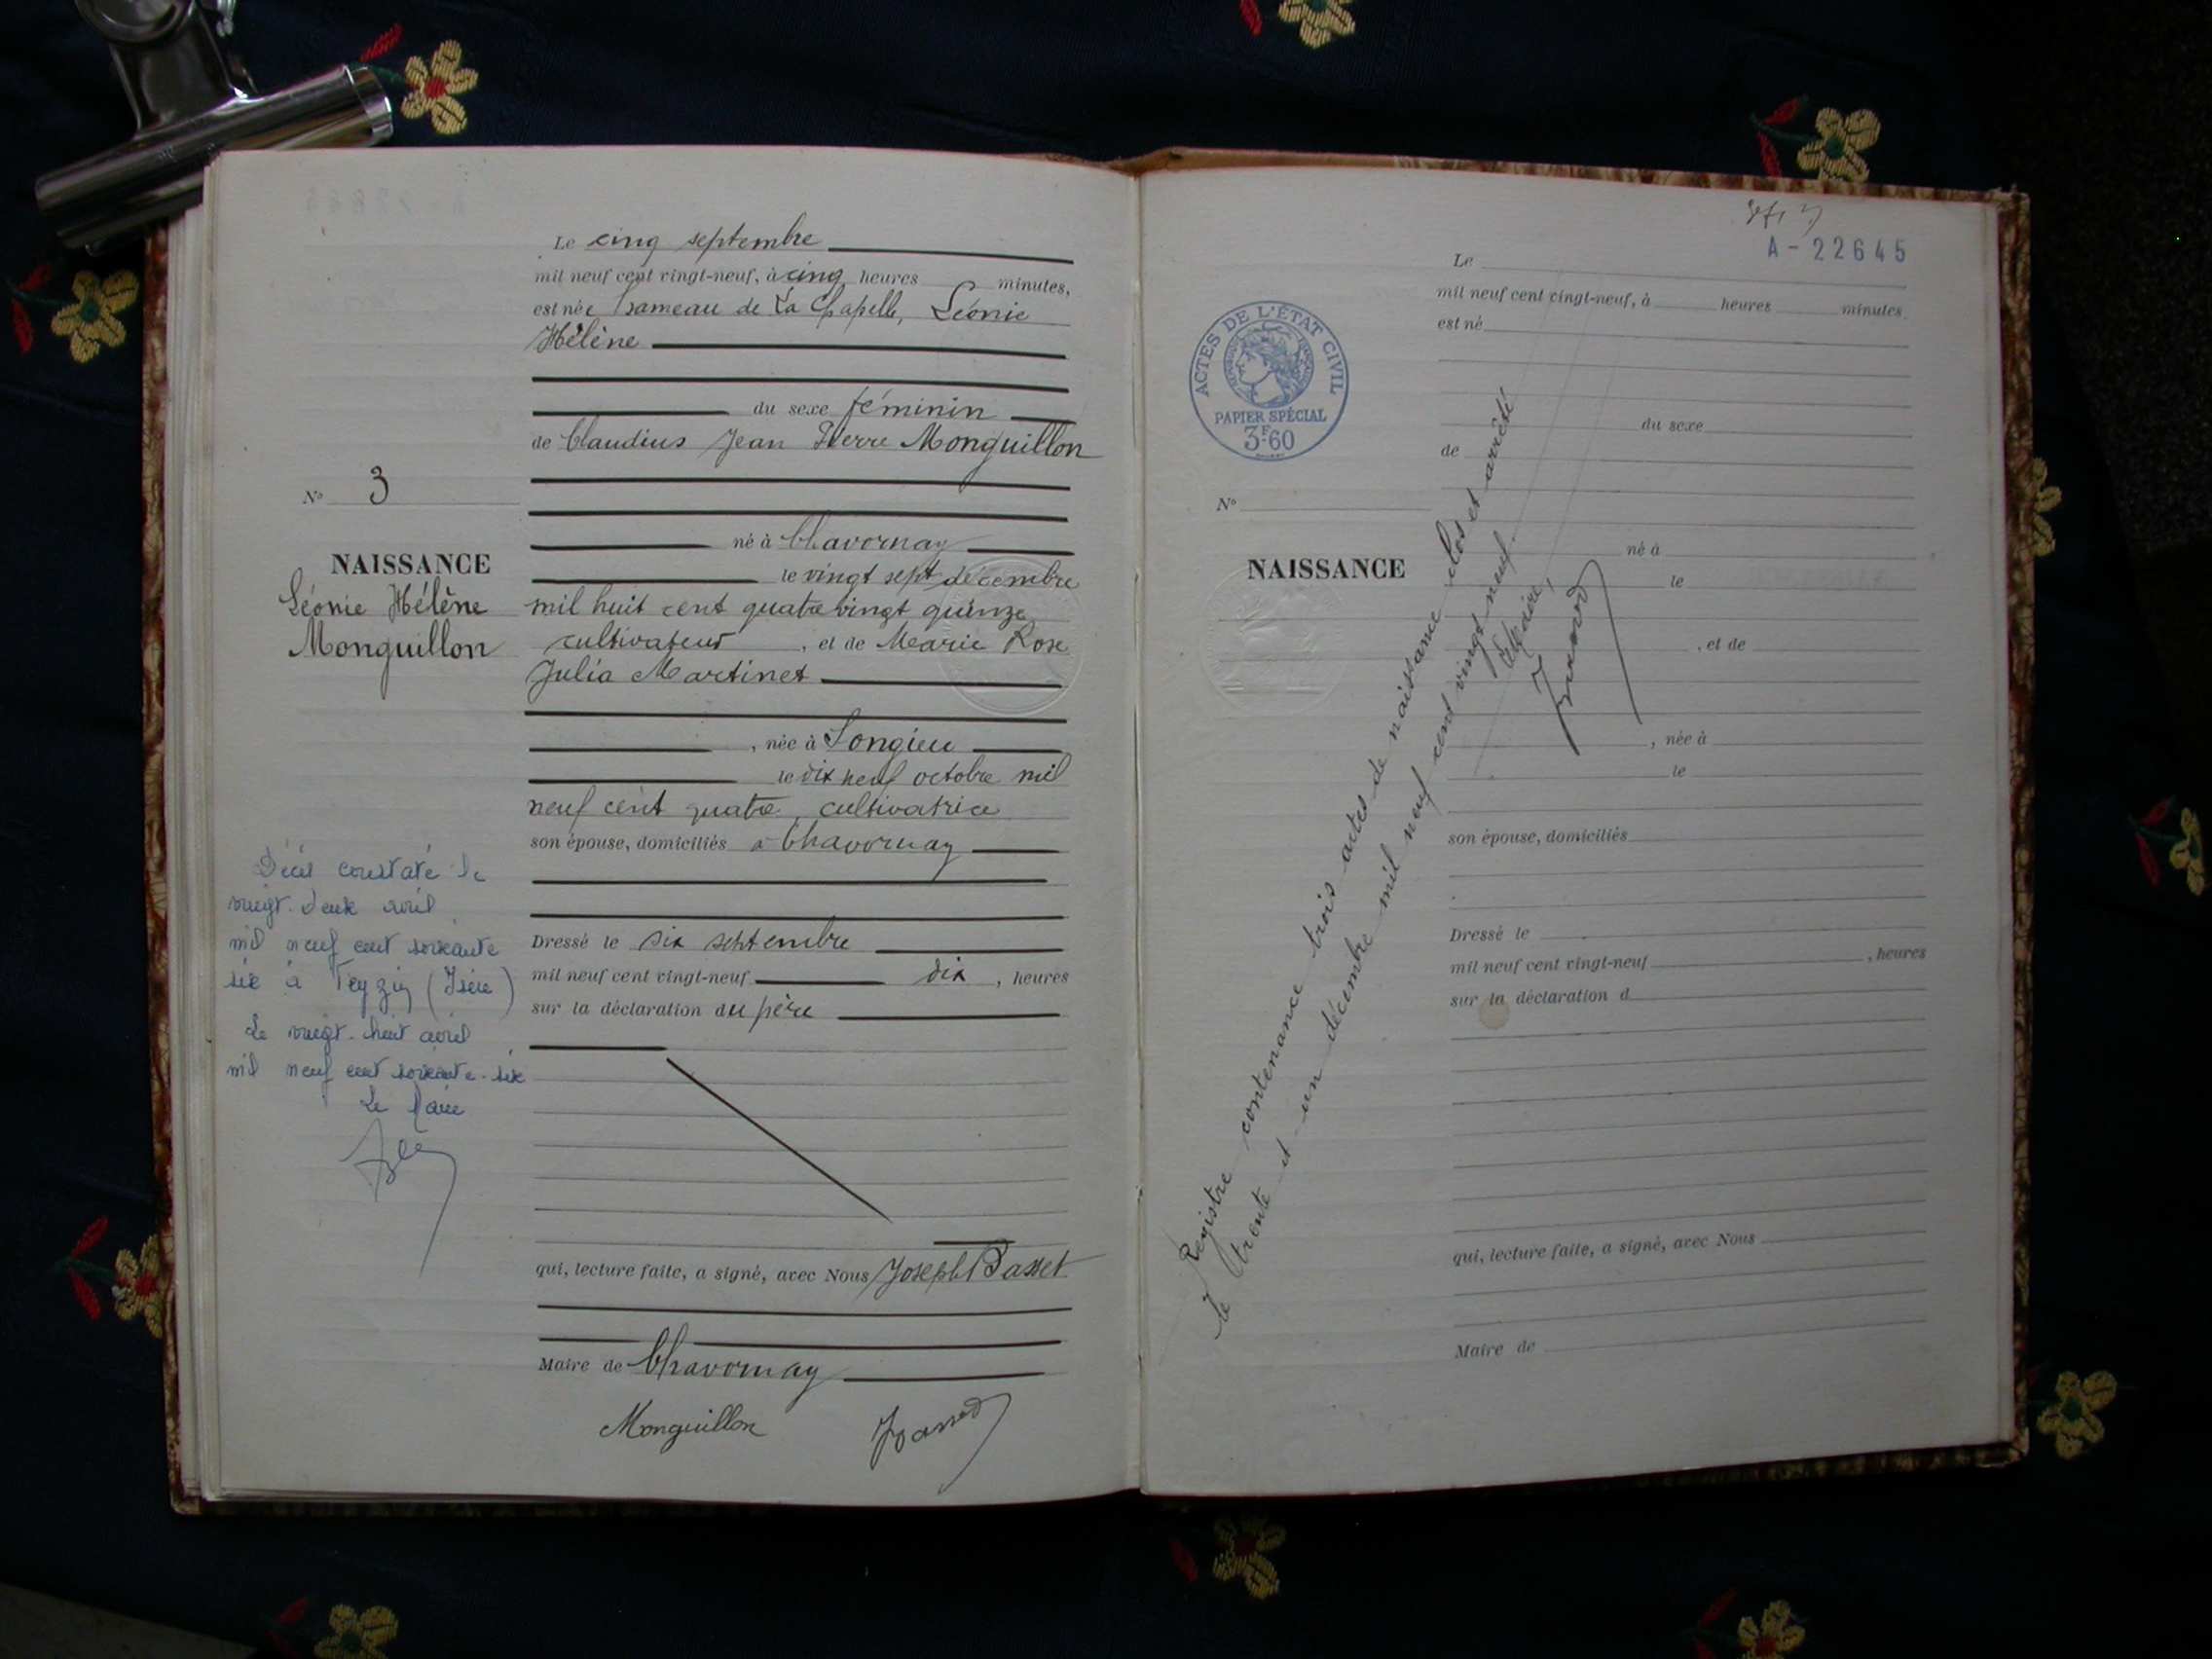 Le cinq septembre
mil neuf cent vingt-neuf, à cinq heures minutes,
est née hameau de La Chapelle, Léonie
Hélène
du sexe féminin
de Claudius Jean Pierre Monguillon
N° 3
né à Chavornay
NAISSANCE
Léonie Hélène
Monguillon
le vingt sept décembre
mil huit cent quatre vingt quinze
cultivateur, et de Marie Rose
Julia Martinet
, née à Songieu
le dix neuf octobre mil
neuf cent quatre, cultivatrice
son épouse, domiciliés à Chavornay
Décès constaté le
vingt-deux avril
mil neuf cent soixante
six à Feyzin (Isère)
Le vingt-huit avril
mil neuf cent soixante-six
Le Maire
Dressé le six septembre
mil neuf cent vingt-neuf dix, heures
sur la déclaration du père
qui, lecture faite, a signé, avec Nous Joseph Passet
Maire de Chavornay
Monguillon
A-22645
Le
mil neuf cent vingt-neuf, à heures minutes
est né
ACTES DE L'ÉTAT CIVIL
PAPIER SPÉCIAL
3F.60
du sexe
de
N°
NAISSANCE
né à
le
, et de
, née à
le
son épouse, domiciliés
Dressé le
mil neuf cent vingt-neuf , heures
sur la déclaration d
qui, lecture faite, a signé, avec Nous
Maire de
Registre contenance trois actes de naissance clos et arrêté
le trente et un décembre mil neuf cent vingt neuf.
Le Maire,